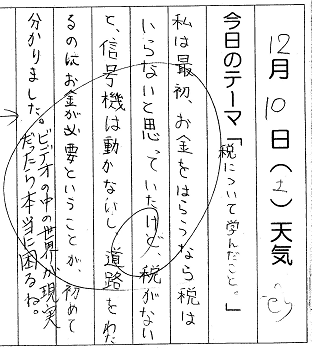 12月10日(土)天気
今日のテーマ「税について学んだこと。」
私は最初、お金をはらうなら税は
いらないと思っていたけど、税がない
と、信号機は動かないし道路をわた
るのにお金が必要ということが、初めて
分かりました。ビデオの中の世界が現実
だったら本当に困るね。